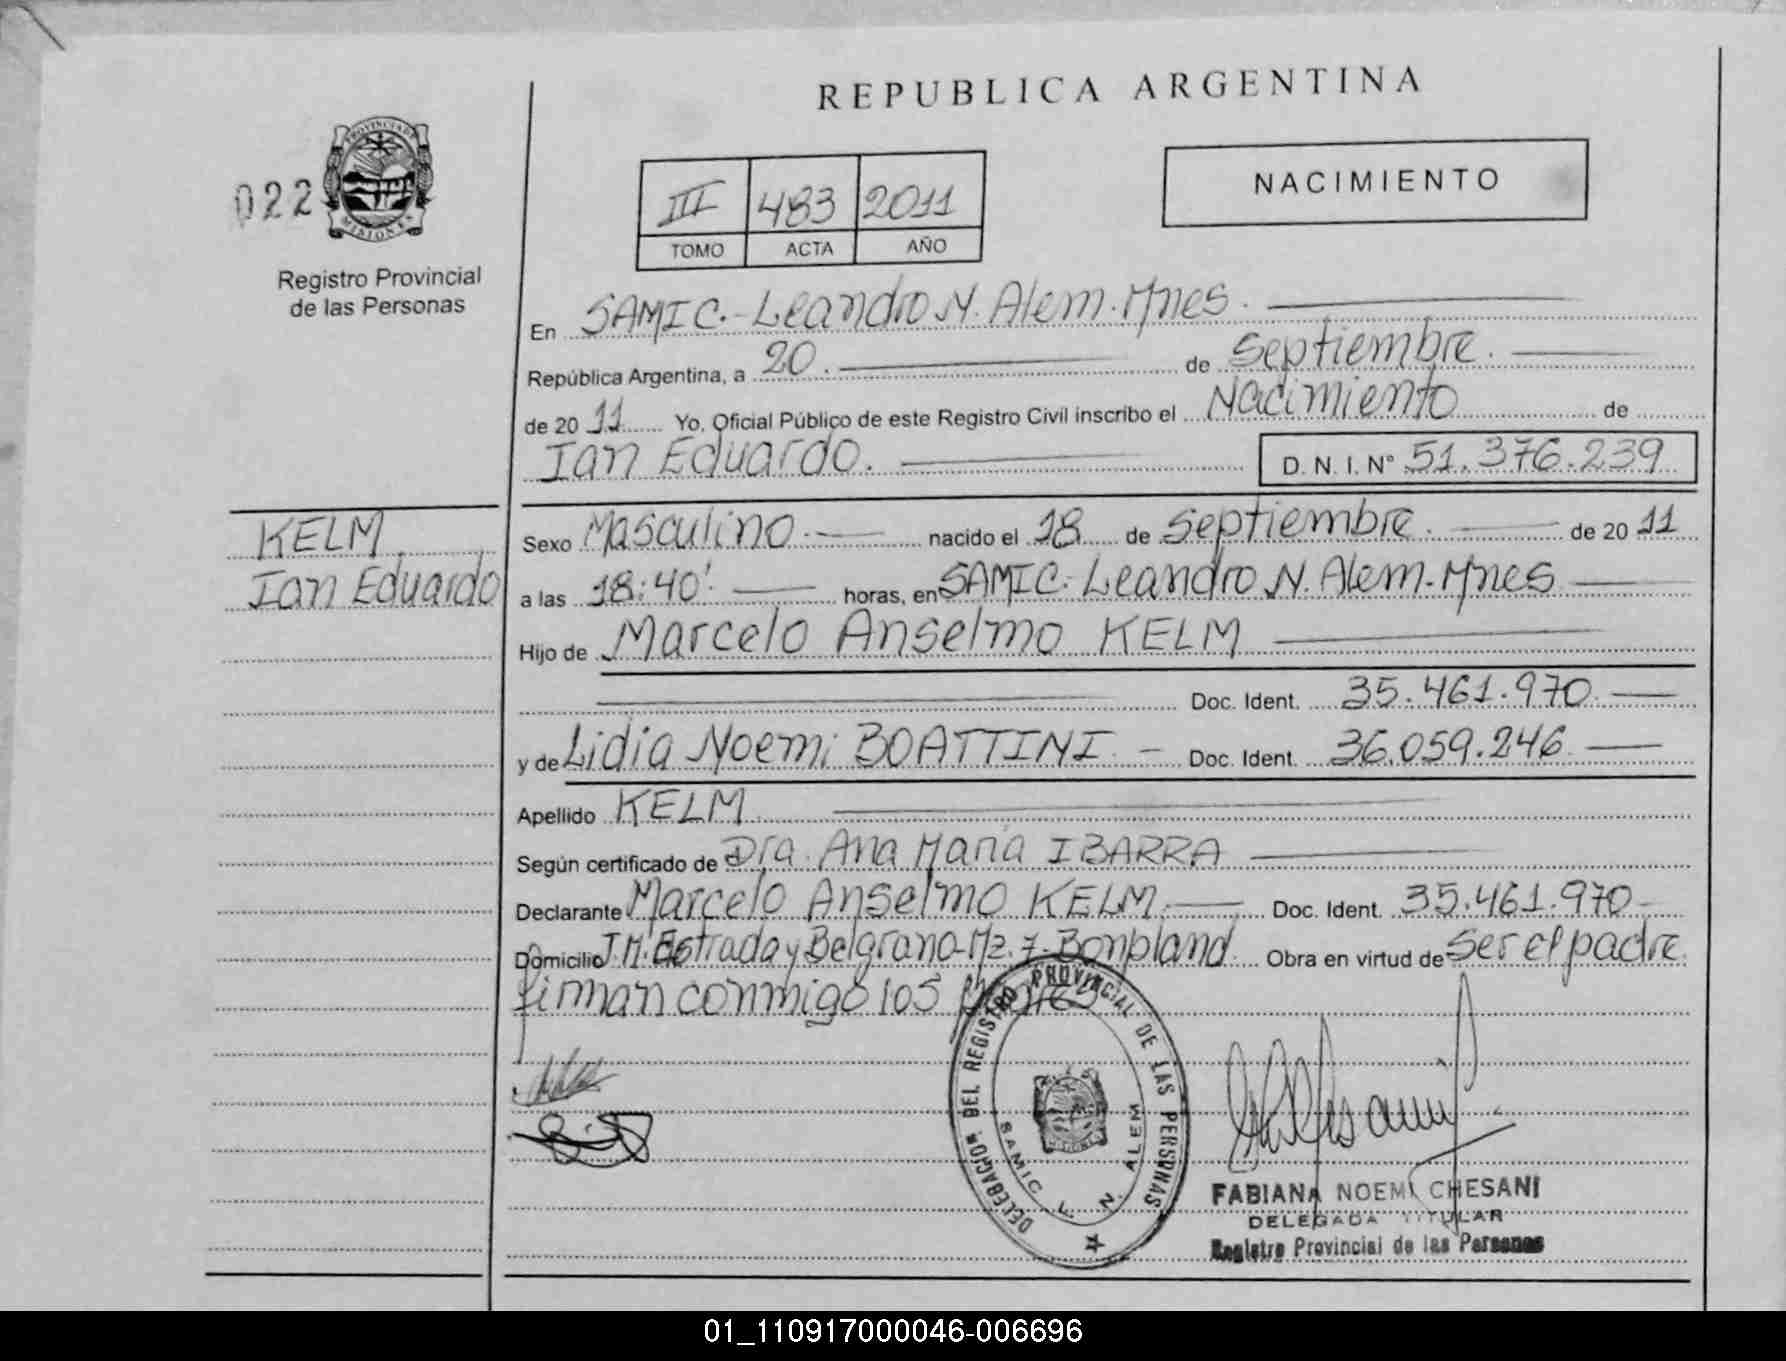 REPUBLICA ARGENTINA
022
PROVINCIA DE MISIONES
Registro Provincial
de las Personas
NACIMIENTO
III 483 2011
TOMO ACTA AÑO
En SAMIC.-Leandro N. Alem.Mnes.
República Argentina, a 20. de Septiembre.
de 20 11 Yo, Oficial Público de este Registro Civil inscribo el Nacimiento de
Ian Eduardo. D. N. I. N° 51.376.239
KELM
Ian Eduardo
Sexo Masculino nacido el 18 de Septiembre. de 20 11
a las 18:40' horas, en SAMIC.-Leandro N. Alem.-Mnes
Hijo de Marcelo Anselmo KELM
Doc. Ident. 35.461.970
y de Lidia Noemi BOATTINI. Doc. Ident. 36.059.246
Apellido KELM
Según certificado de Dra. Ana María IBARRA
Declarante Marcelo Anselmo KELM. Doc. Ident. 35.461.970
Domicilio J.M. Estrada y Belgrano-Mz. 7-Bonpland. Obra en virtud de Ser el padre.
firman conmigo los padres
DELEGACION DEL REGISTRO PROVINCIAL DE LAS PERSONAS
SAMIC L. N. ALEM
FABIANA NOEMI CHESANI
DELEGADA TITULAR
Registro Provincial de las Personas
01_110917000046-006696